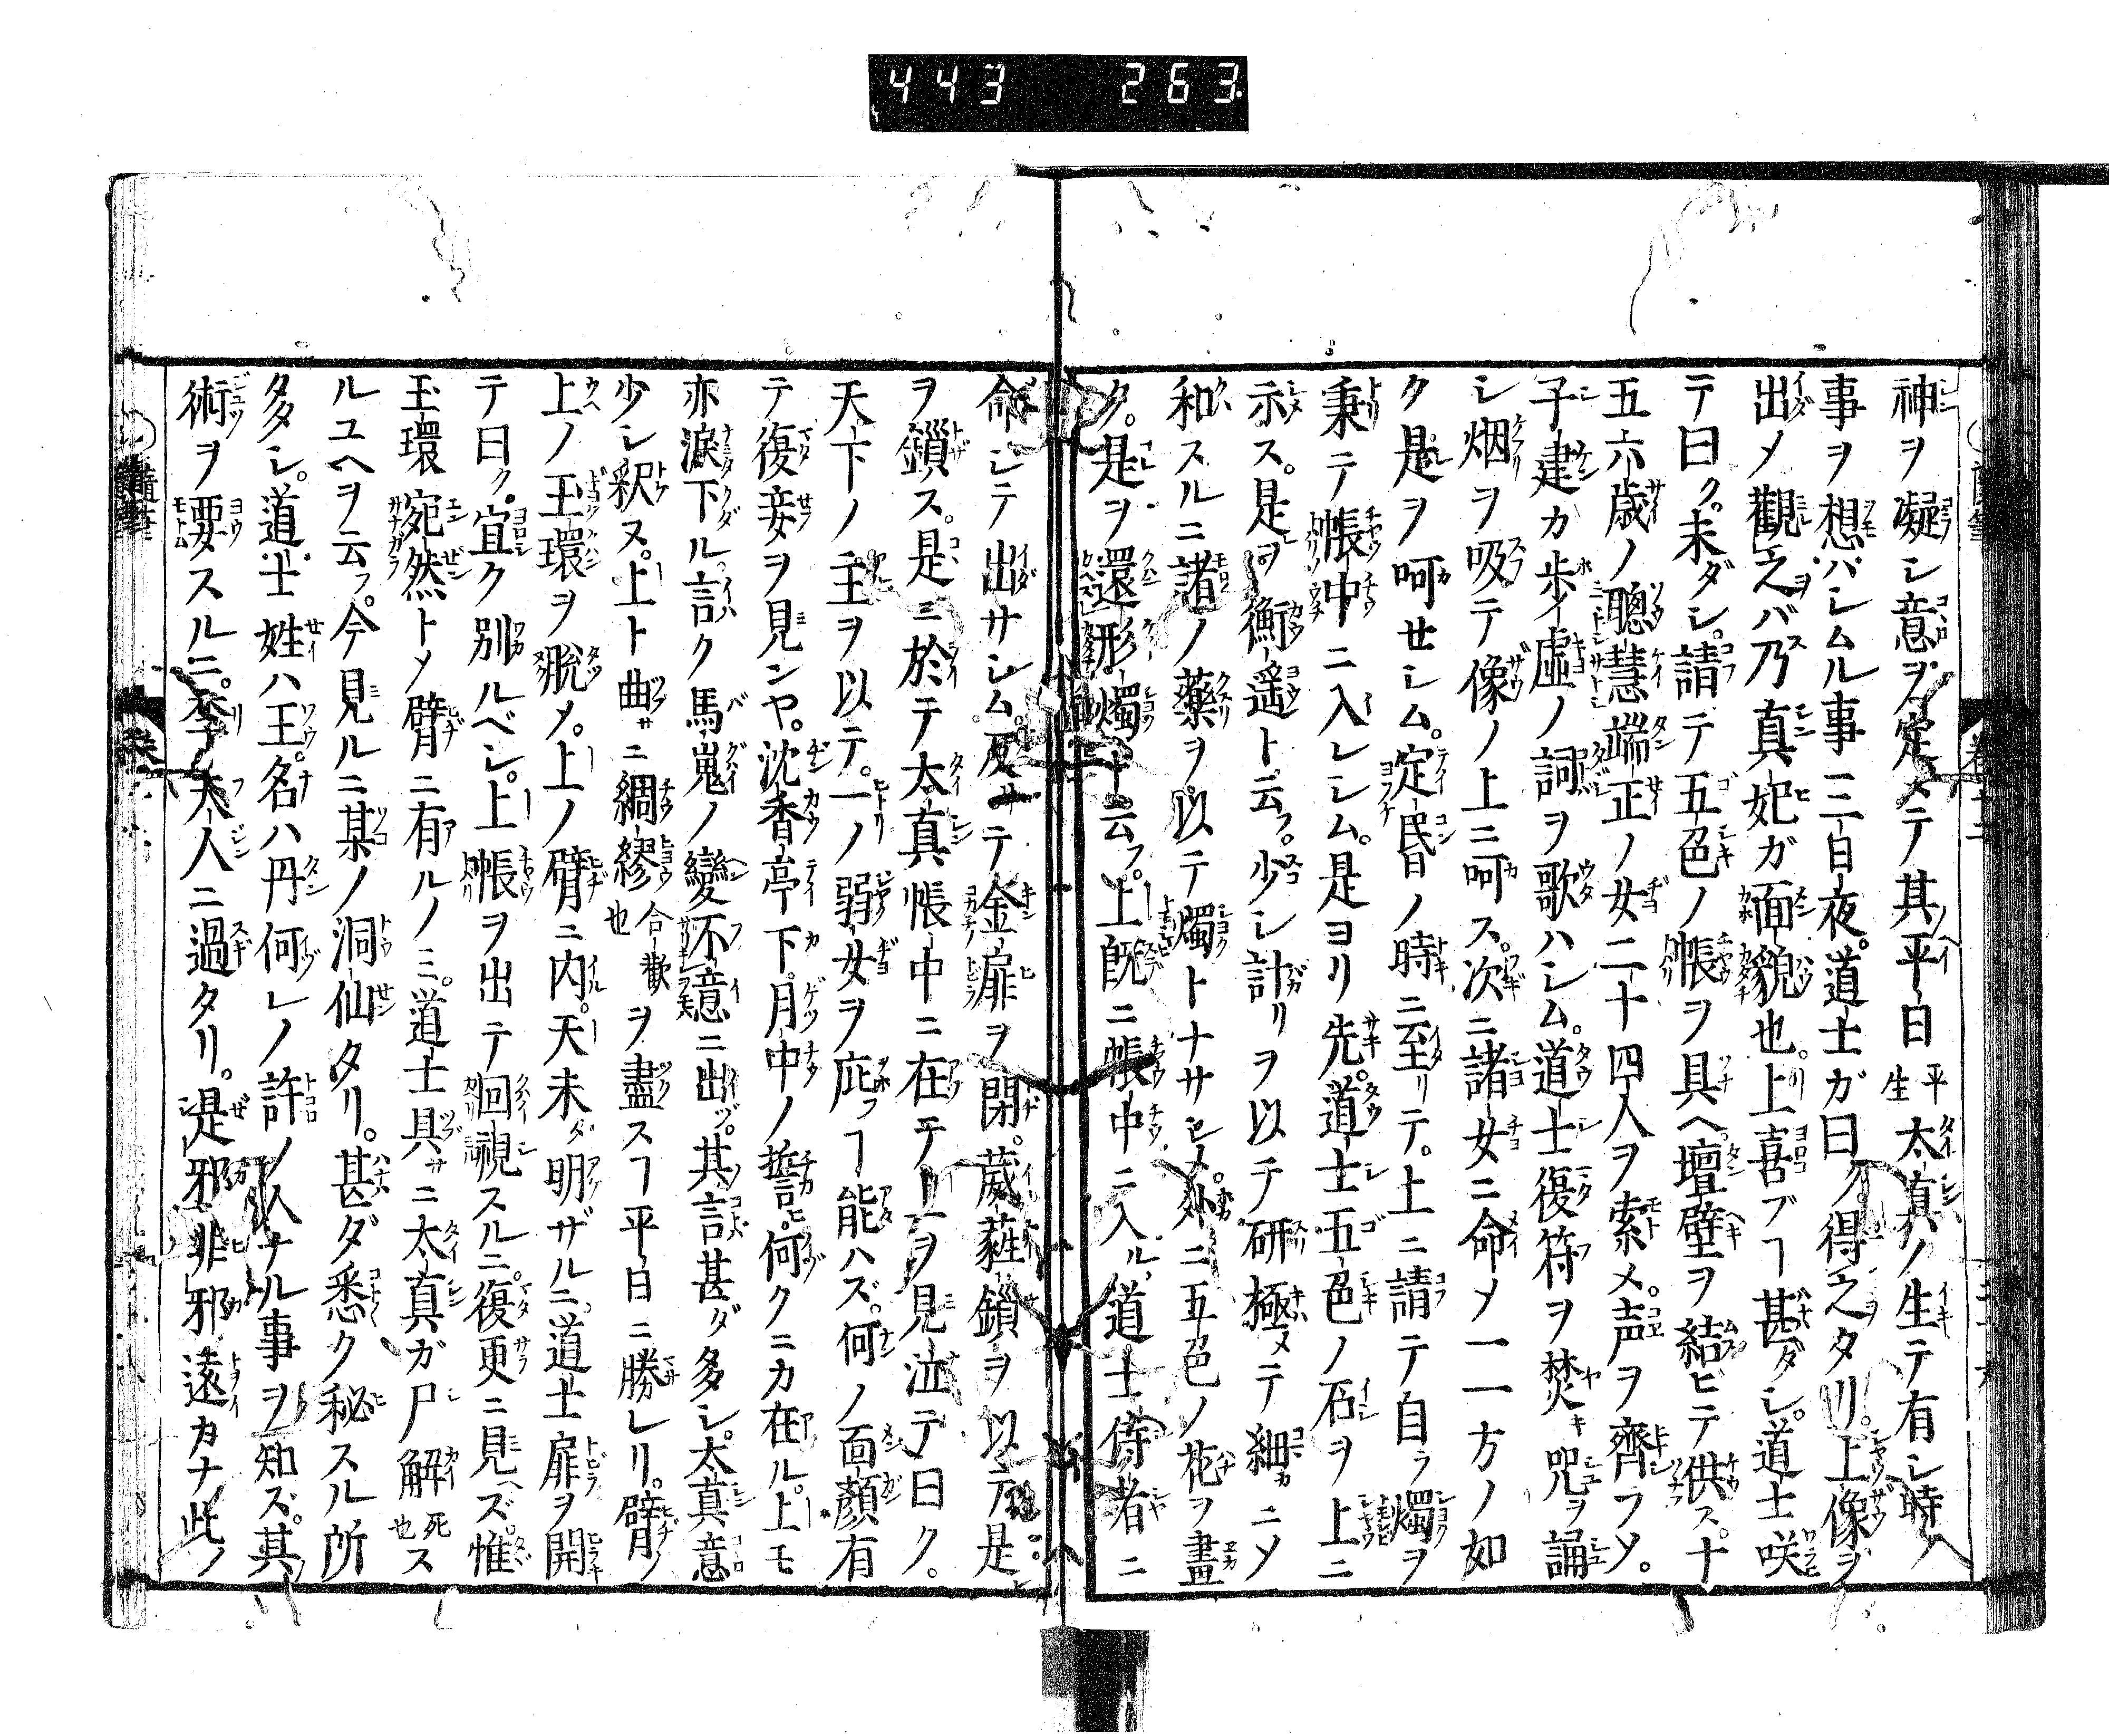 443 263
神ヲ凝シ意ヲ定メテ其平日平生太真ノ生テ有シ時ノ
事ヲ想ハシムル事三日夜。道士ガ曰ク得之タリ。上像ヲ
出メ觀之バ乃真妃ガ面貌也。上喜ブヿ甚ダシ。道士咲
テ曰ク。未ダシ。請テ五色ノ帳ヲ具ヘ壇壁ヲ結ビテ供ス。十
五六歳ノ聰慧端正ノ女二十四人ヲ索メ。声ヲ齊フソ。
子建カ歩虚ノ詞ヲ歌ハシム。道士復符ヲ焚キ咒ヲ誦
シ烟ヲ吸テ像ノ上ニ呵ス。次ニ諸女ニ命メ一一方ノ如
ク是ヲ呵セシム。定昏ノ時ニ至リテ。上ニ請テ自ラ燭ヲ
秉テ帳中ニ入レシム。是ヨリ先。道士五色ノ石ヲ上ニ
示ス。是ヲ衡遥ト云フ。少シ計リヲ以テ研極メテ細ニメ
和スルニ諸ノ藥ヲ以テ燭トナサシメ。外ニ五色ノ花ヲ畫
ク。是ヲ還形燭ト云フ。上既ニ帳中ニ入ル。道士侍者ニ
命シテ出サシム。反サテ金扉ヲ閉。葳蕤鎖ヲ以テ是
ヲ鎖ス。是ニ於テ太真帳中ニ在テ上ヲ見泣テ曰ク。
天下ノ主ヲ以テ。一ノ弱女ヲ庇フヿ能ハズ。何ノ面顏有
テ復妾ヲ見ンヤ。沈香亭下月中ノ誓ヒ。何クニカ在ル。上モ
亦淚下ル。言ク馬嵬ノ變不意ニ出ヅ。其言甚ダ多シ。太真意
少シ釈ヌ。上ト曲サニ綢繆合歡也ヲ盡スヿ平日ニ勝レリ。臂ノ
上ノ玉環ヲ脱メ。上ノ臂ニ内。天未ダ明ザルニ。道士扉ヲ開
テ曰ク。宜ク別ルベシ。上帳ヲ出テ回視スルニ。復更ニ見ヘズ。惟
玉環宛然トメ臂ニ有ルノミ。道士具サニ太真ガ尸解死也ス
ルユヘヲ云フ。今見ルニ某ノ洞仙タリ。甚ダ悉ク秘スル所
多シ。道士姓ハ王。名ハ丹何レノ許ノ人ナル事ヲ知ズ。其
術ヲ要スルニ。李夫人ニ過タリ。是邪非邪遠カナ此ノ